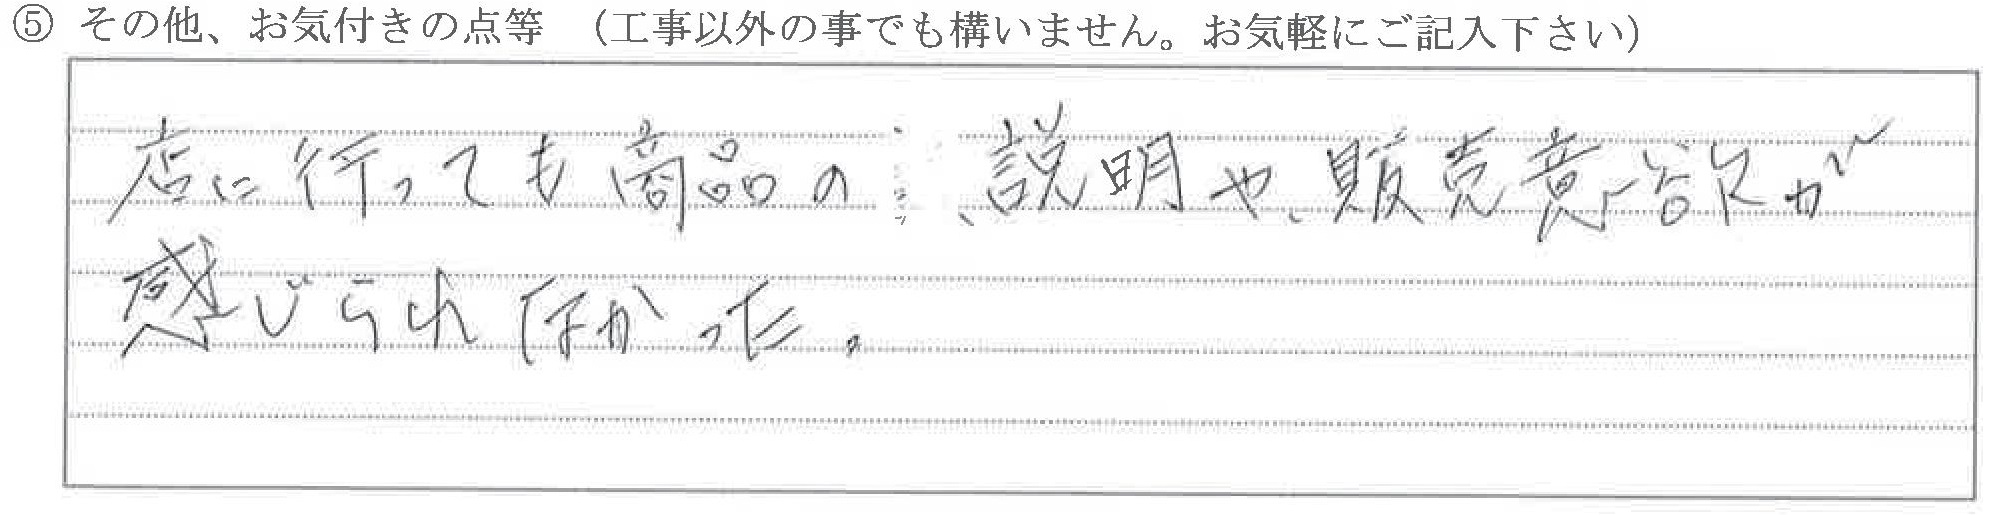 ⑤ その他、お気付きの点等 （工事以外の事でも構いません。お気軽にご記入下さい）
店に行っても商品の、説明や、販売意欲が
感じられなかった。